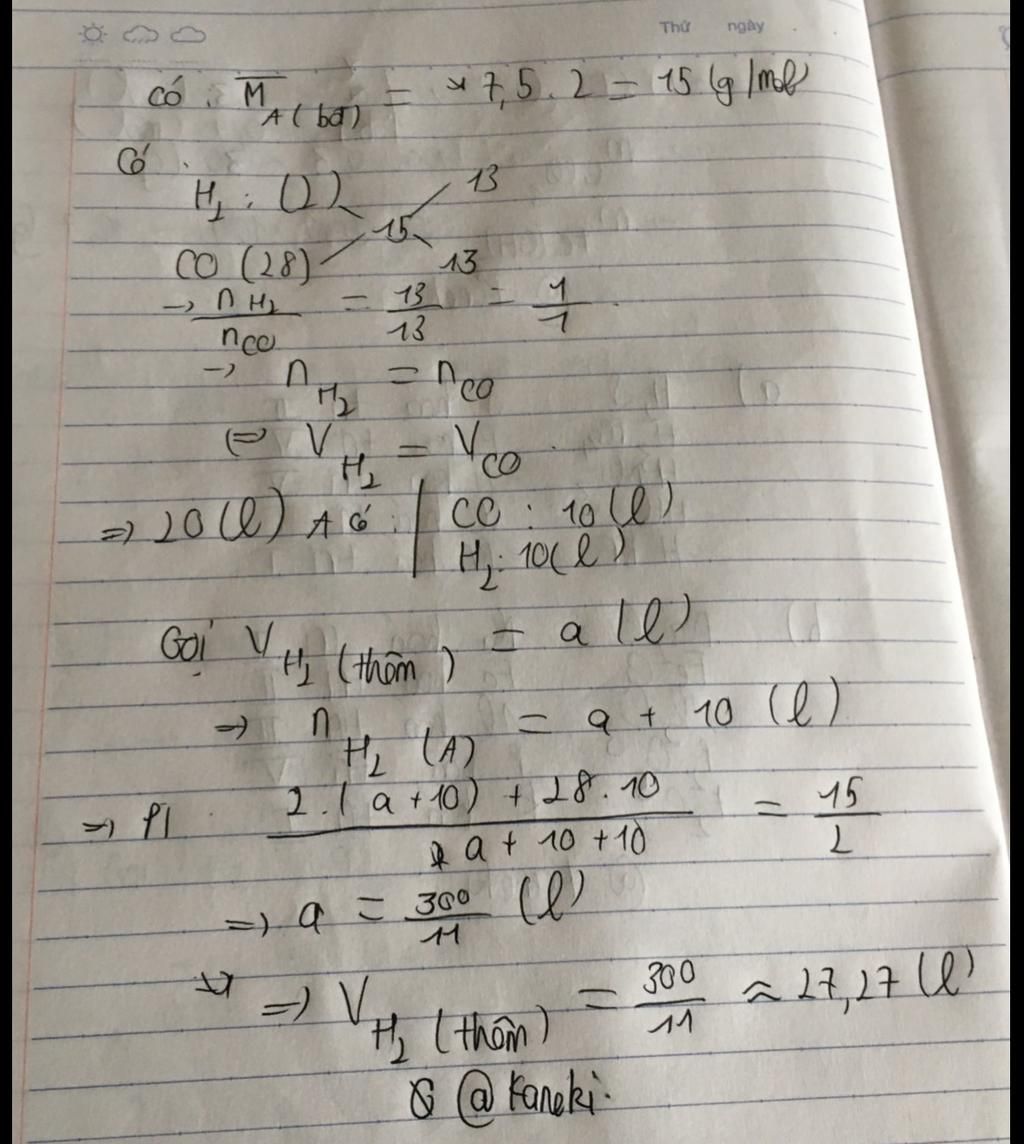 Thứ ngày
có : M̅ A (bđ) = 7,5 . 2 = 15 (g/mol)
Có :
H₂ : (2) 13
15
CO (28) 13
→ n H₂ / n CO = 13/13 = 1/1
→ n H₂ = n CO
⇔ V H₂ = V CO
⇒ 20 (l) A có : | CO : 10 (l)
H₂ : 10 (l)
Gọi V H₂ (thêm) = a (l)
⇒ n H₂ (A) = a + 10 (l)
⇒ PT 2.(a+10) + 28.10 / a + 10 + 10 = 15/2
⇒ a = 300/11 (l)
⇒ V H₂ (thêm) = 300/11 ≈ 27,27 (l)
@Kaneki.